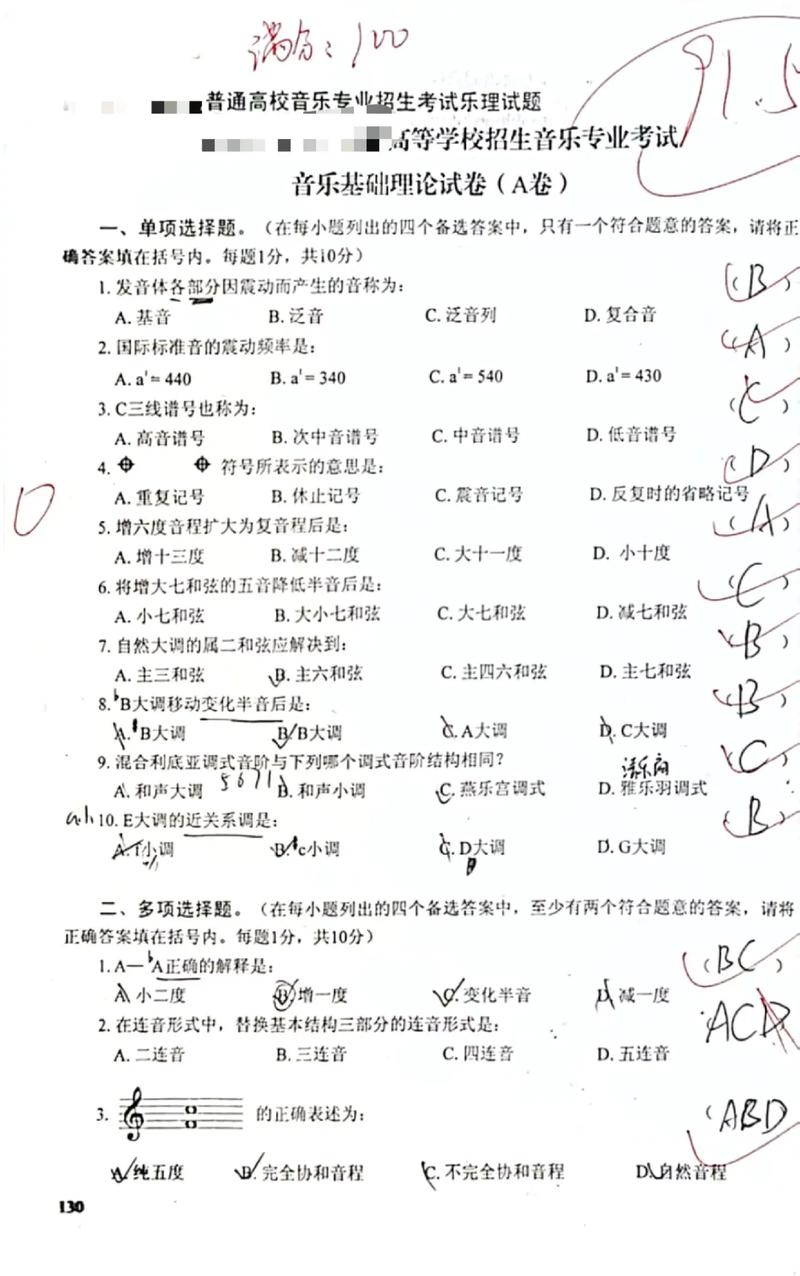 满分：100
91.5
普通高校音乐专业招生考试乐理试题
高等学校招生音乐专业考试
音乐基础理论试卷（A卷）
一、单项选择题。（在每小题列出的四个备选答案中，只有一个符合题意的答案，请将正
确答案填在括号内。每题1分，共10分）
1. 发音体各部分因震动而产生的音称为： （B）
A. 基音 B. 泛音 C. 泛音列 D. 复合音
2. 国际标准音的震动频率是： （A）
A. a¹= 440 B. a¹= 340 C. a¹= 540 D. a¹= 430
3. C三线谱号也称为： （C）
A. 高音谱号 B. 次中音谱号 C. 中音谱号 D. 低音谱号
4. 符号所表示的意思是： （D）
A. 重复记号 B. 休止记号 C. 震音记号 D. 反复时的省略记号
5. 增六度音程扩大为复音程后是： （A）
A. 增十三度 B. 减十二度 C. 大十一度 D. 小十度
6. 将增大七和弦的五音降低半音后是： （C）
A. 小七和弦 B. 大小七和弦 C. 大七和弦 D. 减七和弦
7. 自然大调的属二和弦应解决到： （B）
A. 主三和弦 B. 主六和弦 C. 主四六和弦 D. 主七和弦
8. ♭B大调移动变化半音后是： （B）
A. B大调 B. B大调 C. A大调 D. C大调
9. 混合利底亚调式音阶与下列哪个调式音阶结构相同？ （C）
A. 和声大调 5671 B. 和声小调 C. 燕乐宫调式 D. 雅乐羽调式
10. E大调的近关系调是： （B）
A. f小调 B. ♯c小调 C. D大调 D. G大调
二、多项选择题。（在每小题列出的四个备选答案中，至少有两个符合题意的答案，请将
正确答案填在括号内。每题1分，共10分）
1. A—♭A正确的解释是： （BC）
A. 小二度 B. 增一度 C. 变化半音 D. 减一度
2. 在连音形式中，替换基本结构三部分的连音形式是： ACD
A. 二连音 B. 三连音 C. 四连音 D. 五连音
3. 的正确表述为： （ABD
A. 纯五度 B. 完全协和音程 C. 不完全协和音程 D. 自然音程
130